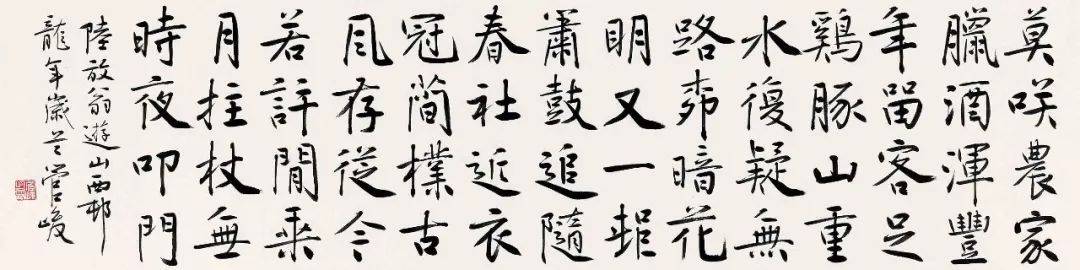 莫咲農家
臘酒渾豐
年留客足
鷄豚山重
水復疑無
路柳暗花
明又一村
蕭鼓追隨
春社近衣
冠簡樸古
風存從今
若許閒乘
月拄杖無
時夜叩門
陸放翁遊山西邨
龍年歲 管峻